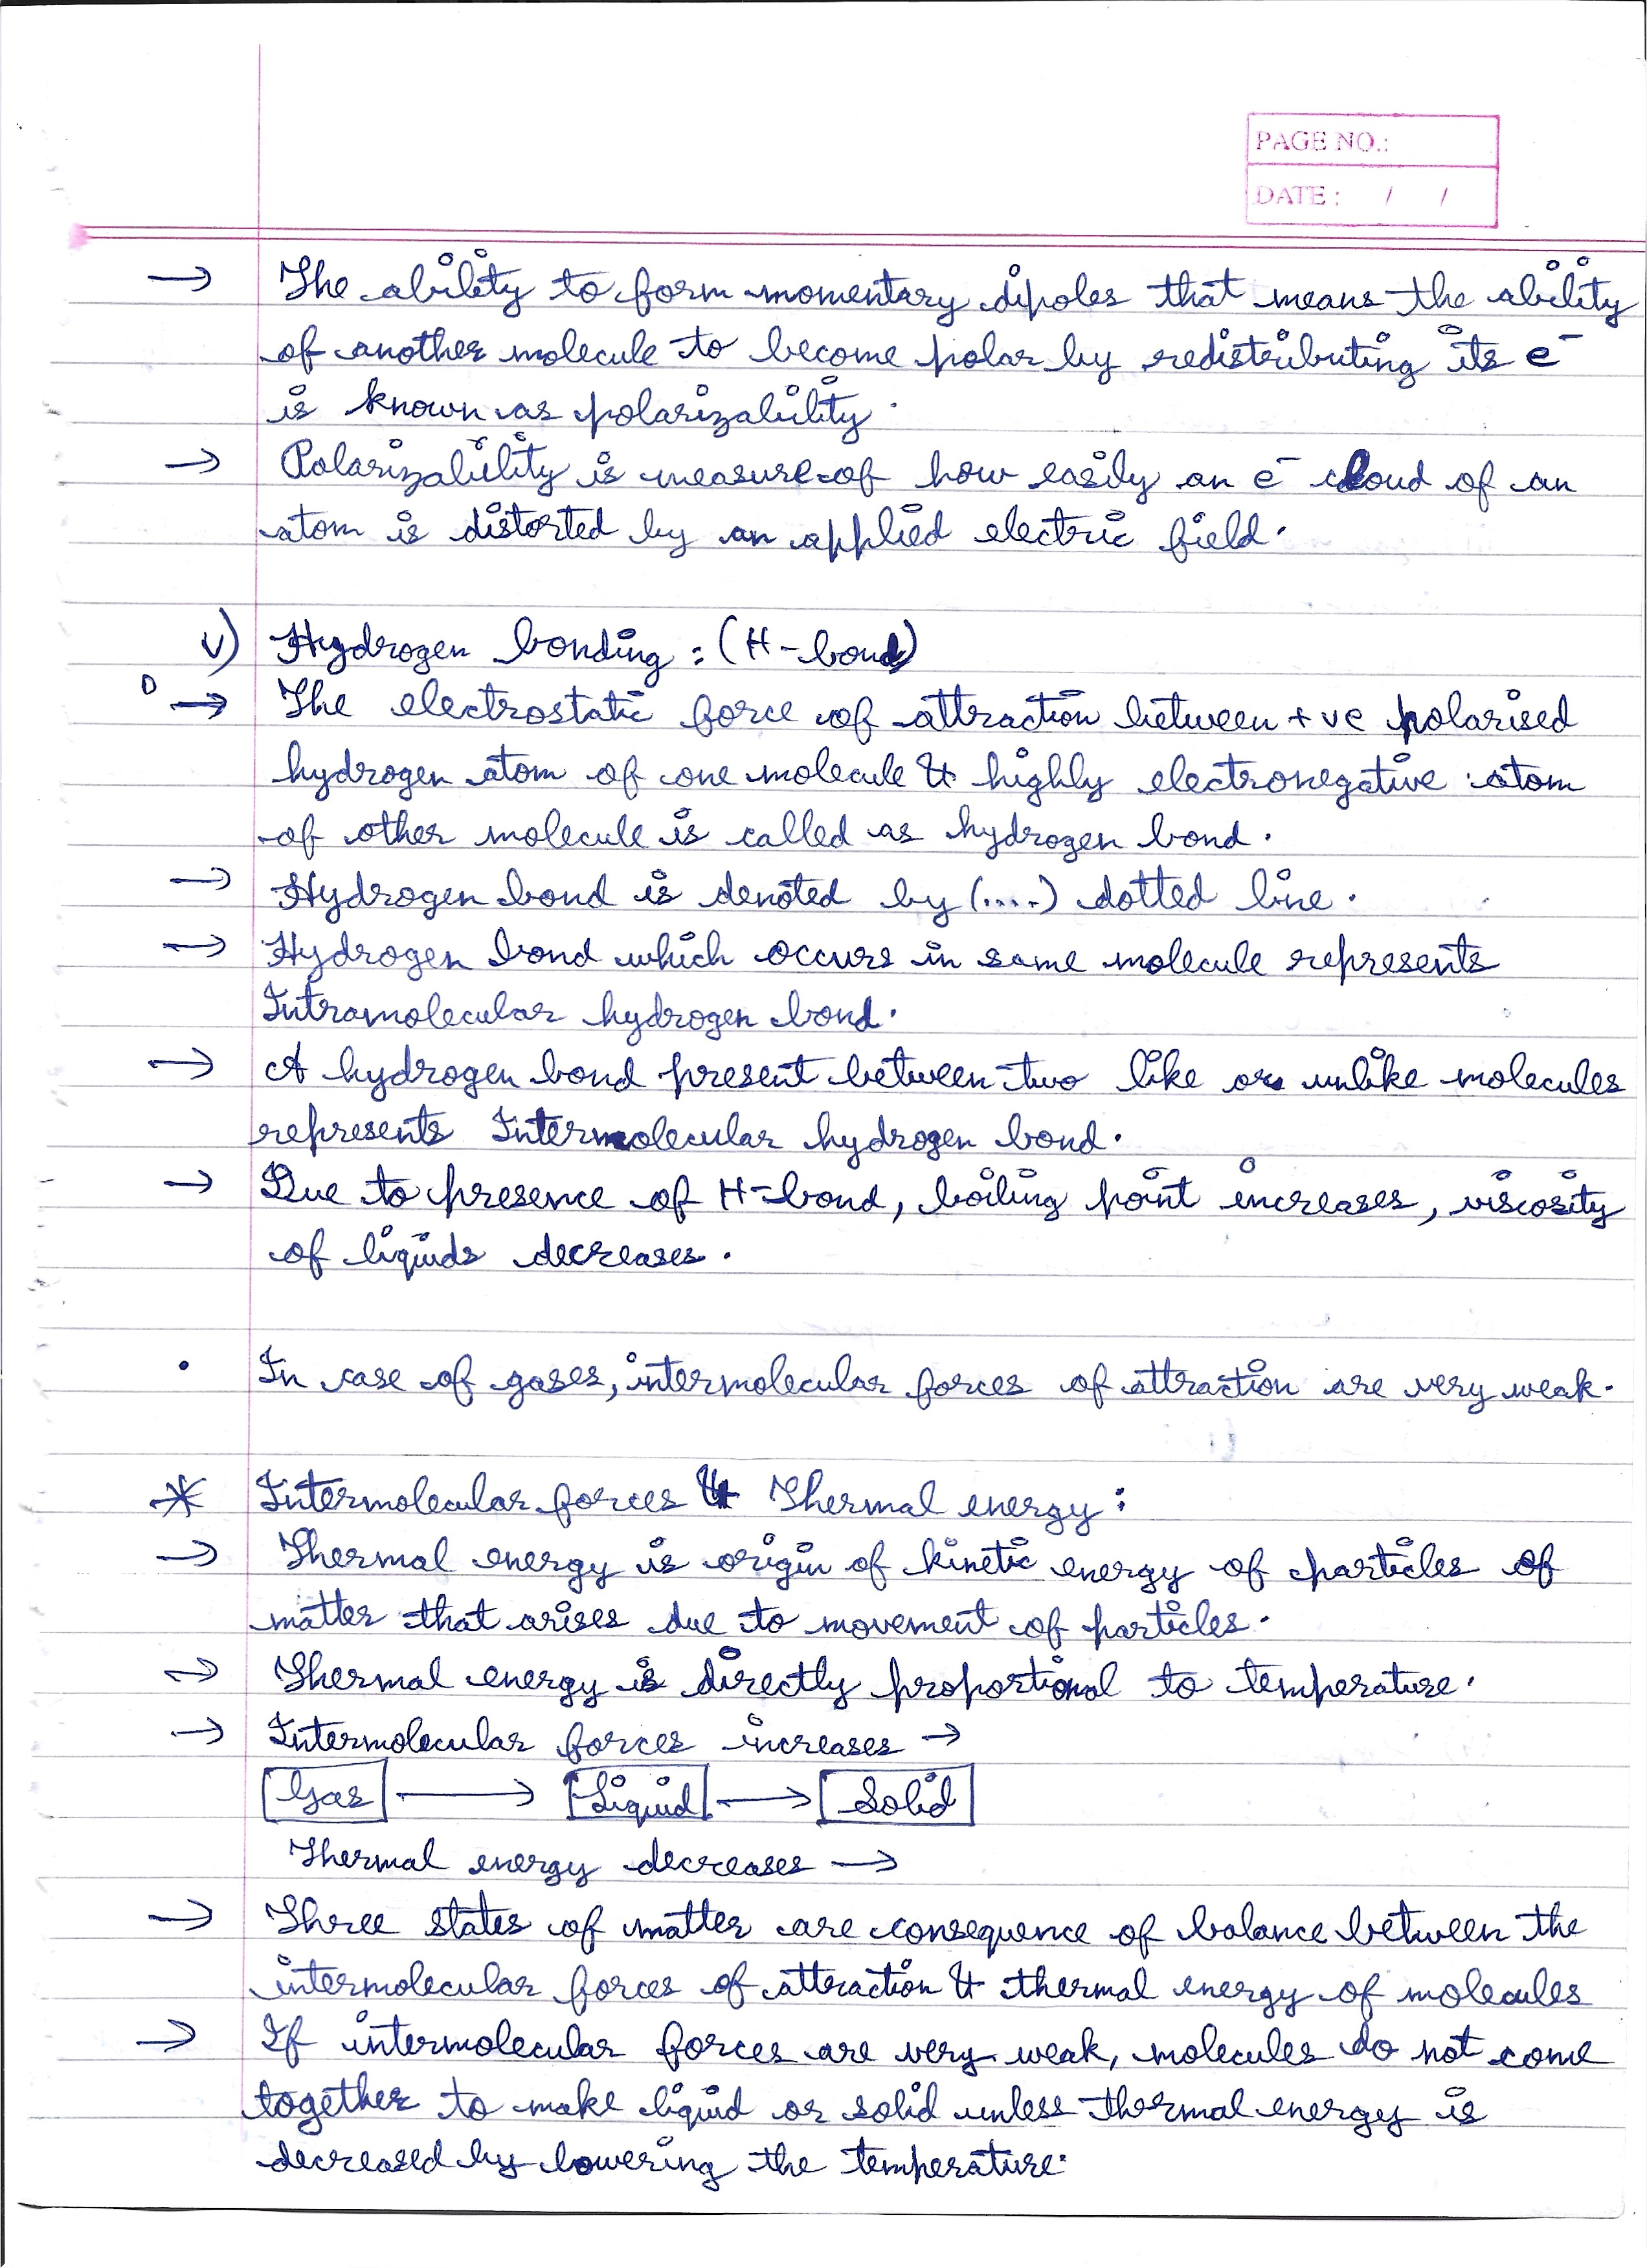 PAGE NO.:
DATE : / /
→ The ability to form momentary dipoles that means the ability
of another molecule to become polar by redistributing its e⁻
is known as polarizability.
→ Polarizability is measure of how easily an e⁻ cloud of an
atom is distorted by an applied electric field.
v) Hydrogen bonding : (H-bond)
→ The electrostatic force of attraction between +ve polarised
hydrogen atom of one molecule & highly electronegative atom
of other molecule is called as hydrogen bond.
→ Hydrogen bond is denoted by (....) dotted line.
→ Hydrogen bond which occurs in same molecule represents
Intramolecular hydrogen bond.
→ A hydrogen bond present between two like or unlike molecules
represents Intermolecular hydrogen bond.
→ Due to presence of H-bond, boiling point increases, viscosity
of liquids decreases.
• In case of gases, intermolecular forces of attraction are very weak.
* Intermolecular forces & Thermal energy :
→ Thermal energy is origin of kinetic energy of particles of
matter that arises due to movement of particles.
→ Thermal energy is directly proportional to temperature.
→ Intermolecular forces increases →
Gas → Liquid → Solid
Thermal energy decreases →
→ Three states of matter are consequence of balance between the
intermolecular forces of attraction & thermal energy of molecules
→ If intermolecular forces are very weak, molecules do not come
together to make liquid or solid unless thermal energy is
decreased by lowering the temperature.